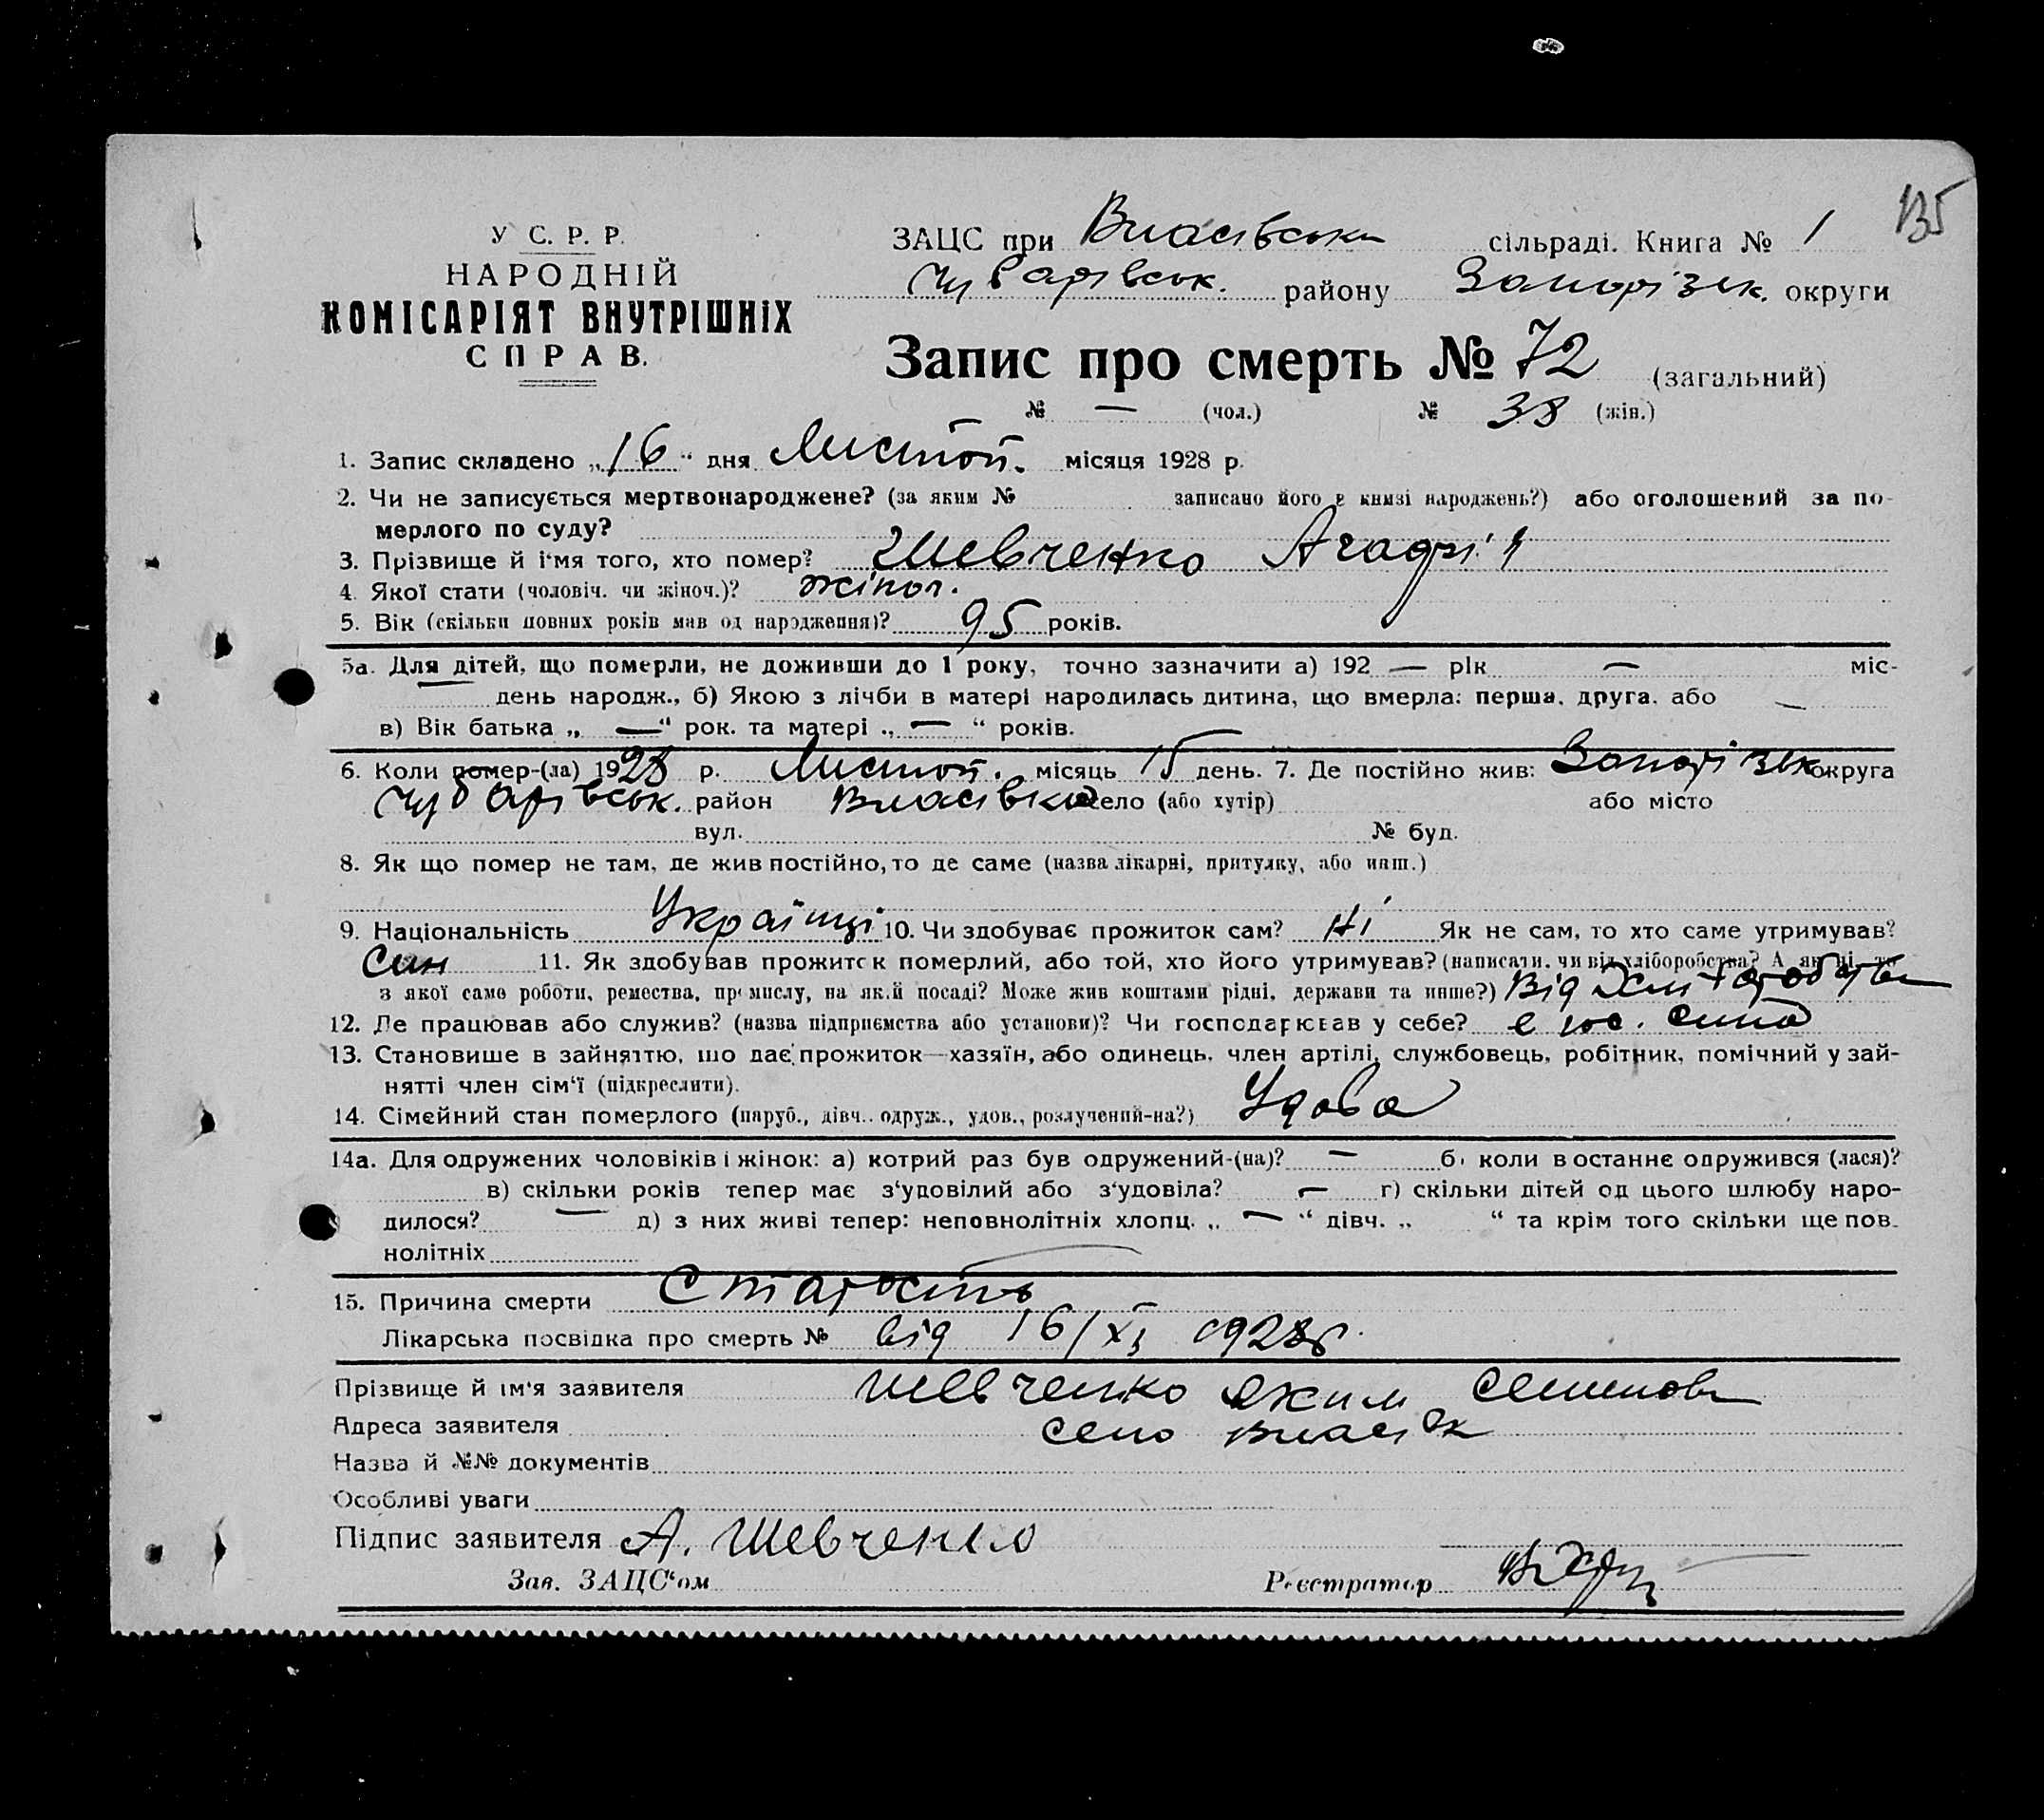 135
У С. Р. Р.
НАРОДНІЙ
КОМІСАРІЯТ ВНУТРІШНІХ
СПРАВ.
ЗАЦС при Власівськи сільраді. Книга № 1
Чубарівськ. району Запорізьк. округи
Запис про смерть № 72 (загальний)
№ — (чол.) № 38 (жін.)
1. Запис складено „16“ дня Листоп. місяця 1928 р.
2. Чи не записується мертвонароджене? (за яким № записано його в книзі народжень?) або оголошений за по-
мерлого по суду?
3. Прізвище й і'мя того, хто помер? Шевченко
4. Якої стати (чоловіч. чи жіноч.)? жіноч.
5. Вік (скільки повних років мав од народження)? 95 років.
5а. Для дітей, що померли, не доживши до 1 року, точно зазначити а) 192 — рік — міс-
— день народж., б) Якою з лічби в матері народилась дитина, що вмерла: перша, друга, або —
в) Вік батька „ — “ рок. та матері „ — “ років.
6. Коли помер-(ла) 1928 р. Листоп. місяць 15 день. 7. Де постійно жив: Запорізьк округа
Чубарівськ. район Власівка село (або хутір) або місто
вул. № буд.
8. Як що помер не там, де жив постійно, то де саме (назва лікарні, притулку, або инш.)
9. Національність Українці 10. Чи здобуває прожиток сам? Ні Як не сам, то хто саме утримував?
Син 11. Як здобував прожиток померлий, або той, хто його утримував? (написати, чи від хліборобства? А як ні, то
з якої саме роботи, ремества, промислу, на якій посаді? Може жив коштами рідні, держави та инше?) Від
12. Де працював або служив? (назва підприємства або установи)? Чи господарював у себе? сина
13. Становише в зайняттю, що дає прожиток—хазяїн, або одинець, член артілі, службовець, робітник, помічний у зай-
нятті член сім'ї (підкреслити).
14. Сімейний стан померлого (паруб., дівч., одруж., удов., розлучений-на?) Удова
14а. Для одружених чоловіків і жінок: а) котрий раз був одружений-(на)? — б) коли в останнє одружився (лася)?
в) скільки років тепер має з'удовілий або з'удовіла? — г) скільки дітей од цього шлюбу наро-
дилося? — д) з них живі тепер: неповнолітніх хлопц. „ — “ дівч. „ “ та крім того скільки ще пов-
нолітніх
15. Причина смерти Старость
Лікарська посвідка про смерть № від 16/XI 1928р.
Прізвище й ім'я заявителя Шевченко Яким
Адреса заявителя село
Назва й №№ документів
Особливі уваги
Підпис заявителя А. Шевченко
Зав. ЗАЦС'ом Реєстратор